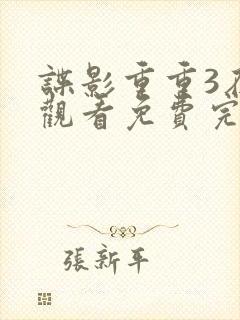 諜影重重3
觀看免費完
張新平